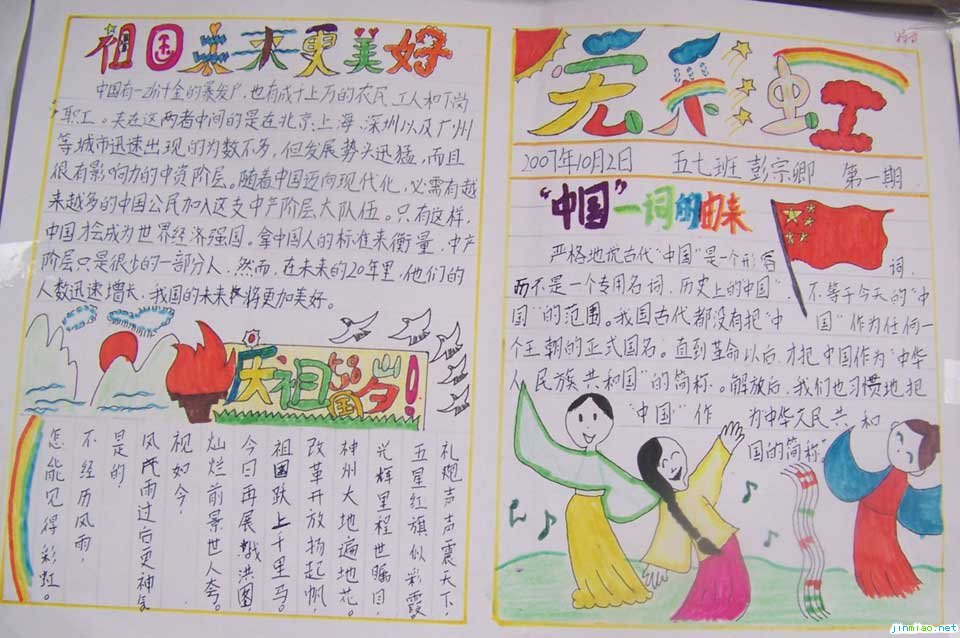 祖国未来更美好
中国有一小计金的暴发户，也有成千上万的农民、工人和下岗
职工。夹在这两者中间的是在北京、上海、深圳以及广州
等城市迅速出现的为数不多，但发展势头迅猛，而且
很有影响力的中资阶层。随着中国迈向现代化，必需有越
来越多的中国公民加入这支中产阶层大队伍。只有这样，
中国才会成为世界经济强国。拿中国人的标准来衡量，中产
阶层只是很少的一部分人，然而，在未来的20年里，他们的
人数迅速增长，我国的未来将更加美好。
庆祖国58岁！
礼炮声声震天下，
五星红旗似彩霞。
光辉里程世瞩目，
神州大地遍地花。
改革开放扬起帆
祖国跃上千里马。
今日再展戬洪图
灿烂前景世人夸。
视如今？
风雨过后更神气
是的！
不经历风雨，
怎能见得彩虹。
天虹
2007年10月2日 五七班 彭宗卿 第一期
“中国”一词的由来
严格地说古代“中国”是一个形容词，
而不是一个专用名词，历史上的“中国”不等于今天的“中
国”的范围。我国古代都没有把“中国”作为任何一
个王朝的正式国名。直到革命以后，才把中国作为“中华
人民族共和国”的简称。解放后，我们也习惯地把
“中国”作为中华人民共和
国的简称
jinmiao.net